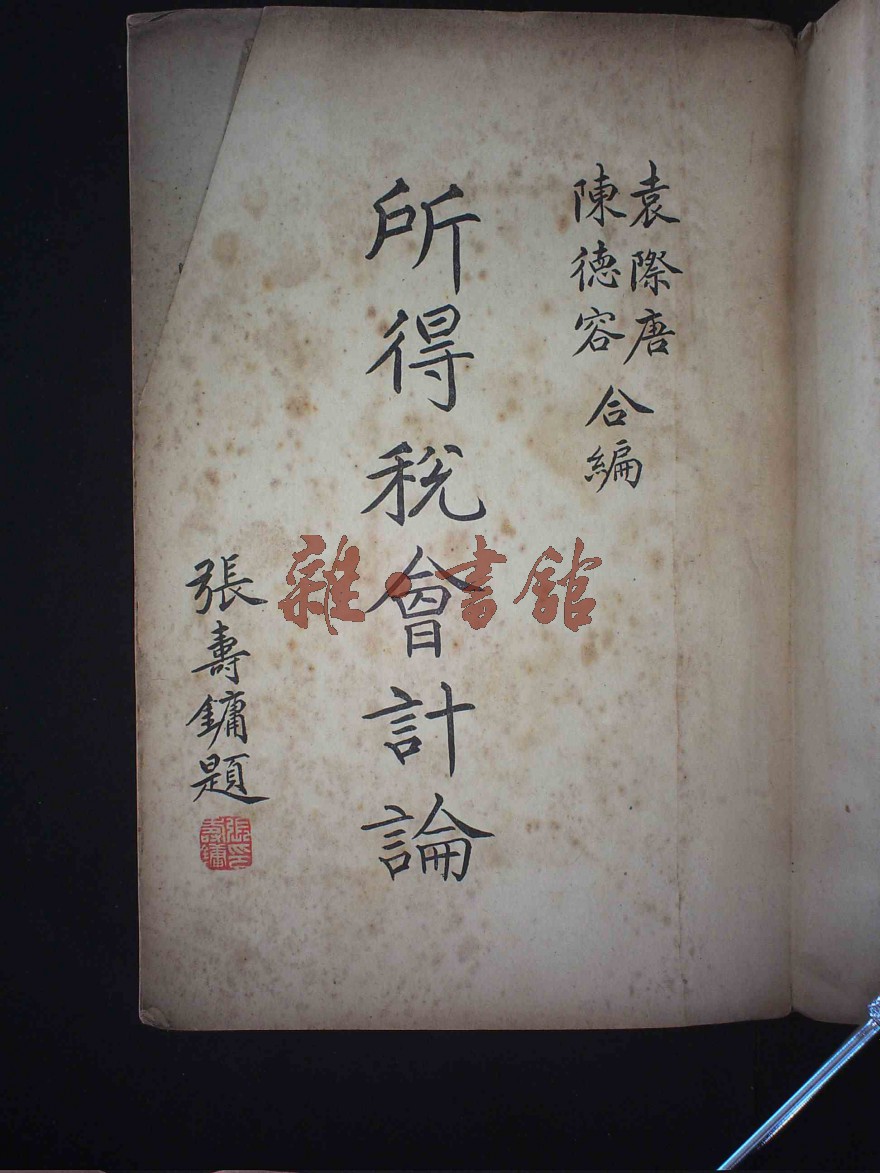 袁際唐
陳德容
合編
所得稅會計論
張壽鏞題
張壽鏞印
雜·書館